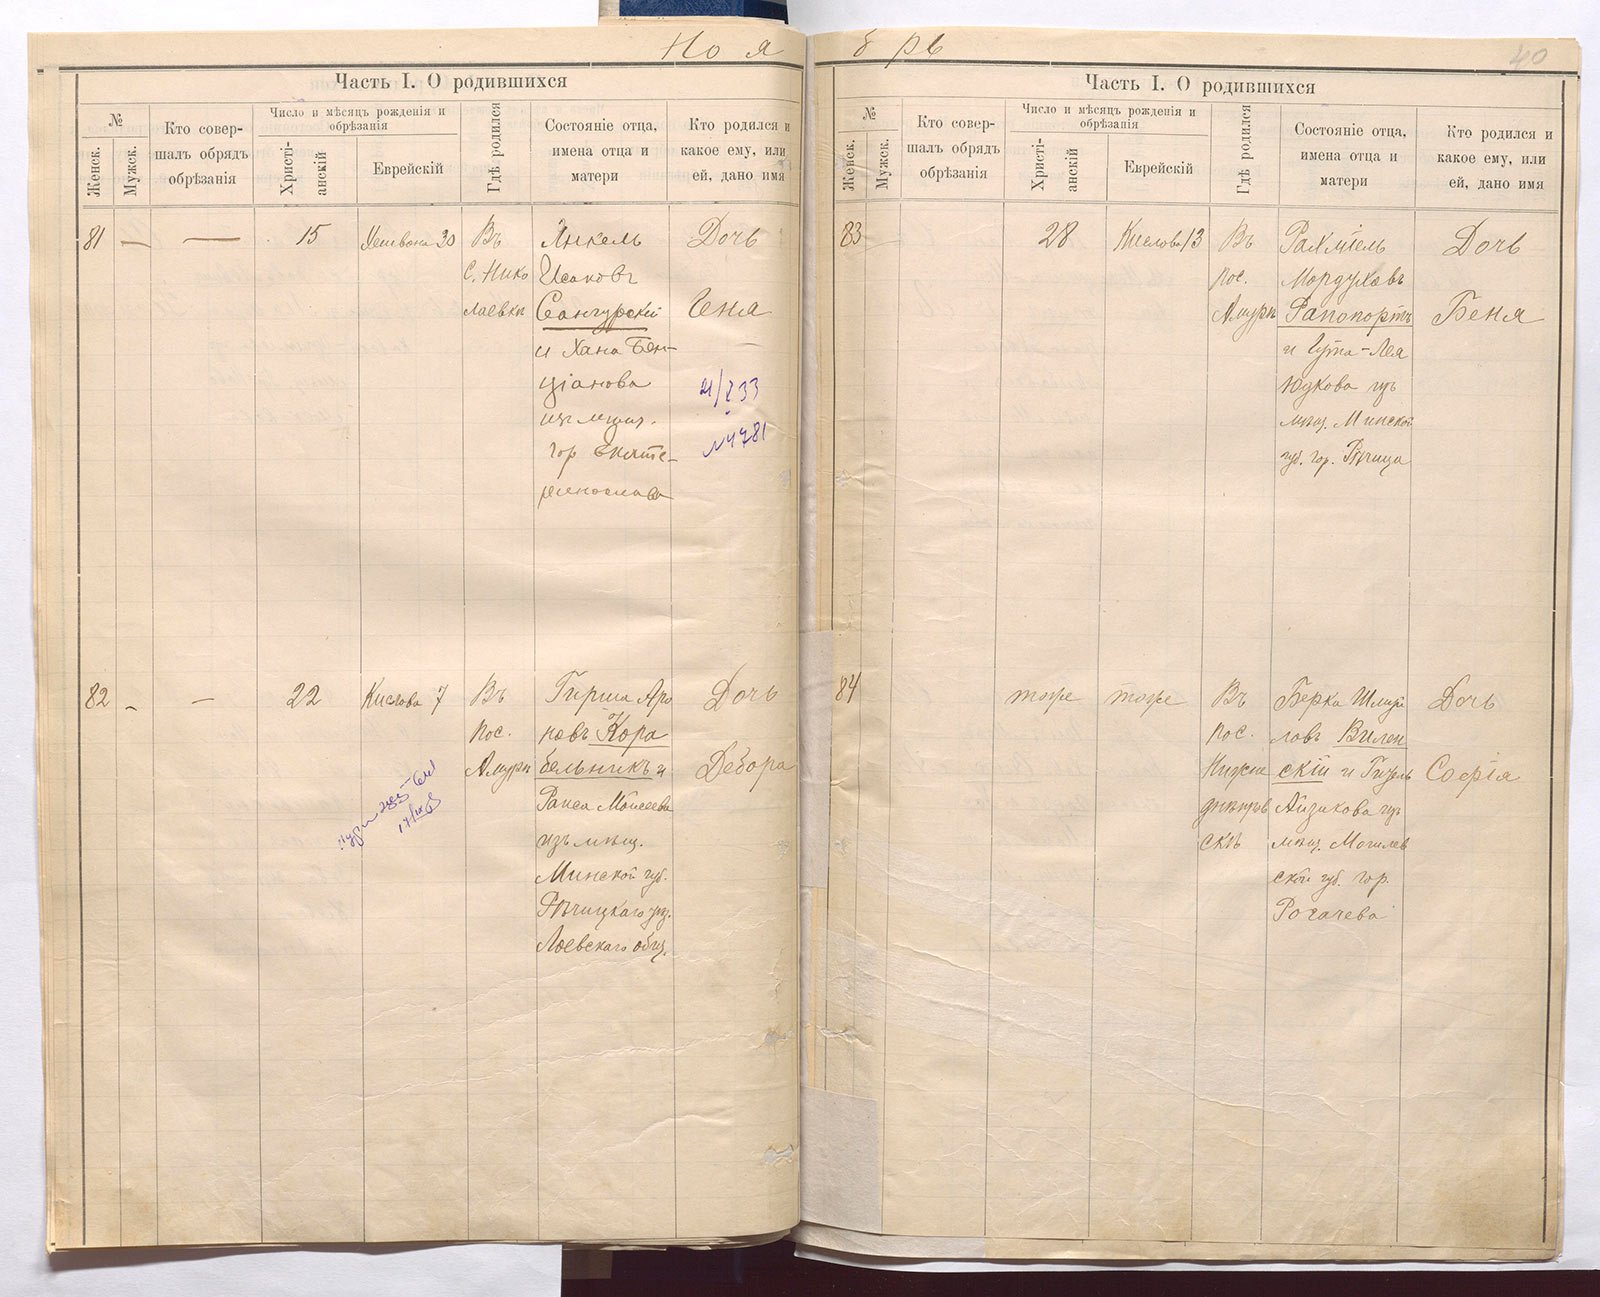 Ноя
Часть I. О родившихся
№
Женск.
Мужск.
Кто совер-
шалъ обрядъ
обрѣзанія
Число и мѣсяцъ рожденія и
обрѣзанія
Христі-
анскій
Еврейскій
Гдѣ родился
Состояніе отца,
имена отца и
матери
Кто родился и
какое ему, или
ей, дано имя
81 — — 15 30
Въ
с. Нико
лаевкѣ
Янкель
Исаковъ
и Хана Бен-
ціанова
изъ мѣщ.
гор Екате-
ринослава
Дочь
Геня
№ 4781
82 - — 22 Кислова 7
Въ
пос.
Амурѣ
Гирша Аро
новъ Кора
бельникъ и
Раиса Моисеева
изъ мѣщ.
Минской губ.
Рѣчицкаго уѣз.
Лоевскаго общ.
Дочь
Дебора
брь
40
Часть I. О родившихся
№
Женск.
Мужск.
Кто совер-
шалъ обрядъ
обрѣзанія
Число и мѣсяцъ рожденія и
обрѣзанія
Христі-
анскій
Еврейскій
Гдѣ родился
Состояніе отца,
имена отца и
матери
Кто родился и
какое ему, или
ей, дано имя
83 28 Кислова 13
Въ
пос.
Амурѣ
Рахміель
Мордуховъ
Рапопортъ
и Гута-Лея
Юдкова изъ
мѣщ. Минской
губ. гор. Рѣчица
Дочь
Беня
84 тоже тоже
Въ
пос.
Нижне
днѣпров
скѣ
Берка Шмуй
ловъ Вилен
скій и Гизель
Айзикова изъ
мѣщ. Могилев
ской губ. гор.
Рогачева
Дочь
Софія